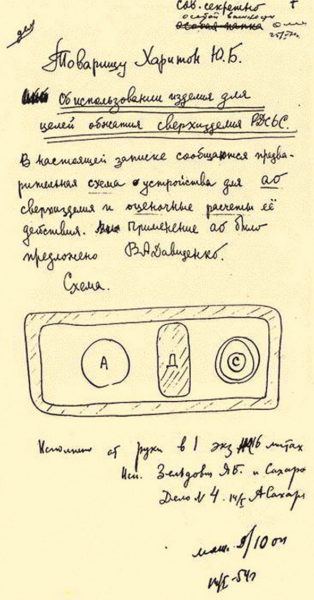 Сов. секретно
особой важности
Особая папка
Товарищу Харитон Ю.Б.
Об использовании изделия для
целей обжатия сверхизделия РДС-6С.
В настоящей записке сообщаются предва-
рительная схема устройства для аб
сверхизделия и оценочные расчеты её
действия. Применение аб было
предложено В.А.Давиденко.
Схема.
А Д С
Исполнено от руки в 1 экз на 6 листах
Исп. Зельдович Я.Б. и Сахаро
Дело № 4. 14/I А Сахар
маш.
14/I-54г